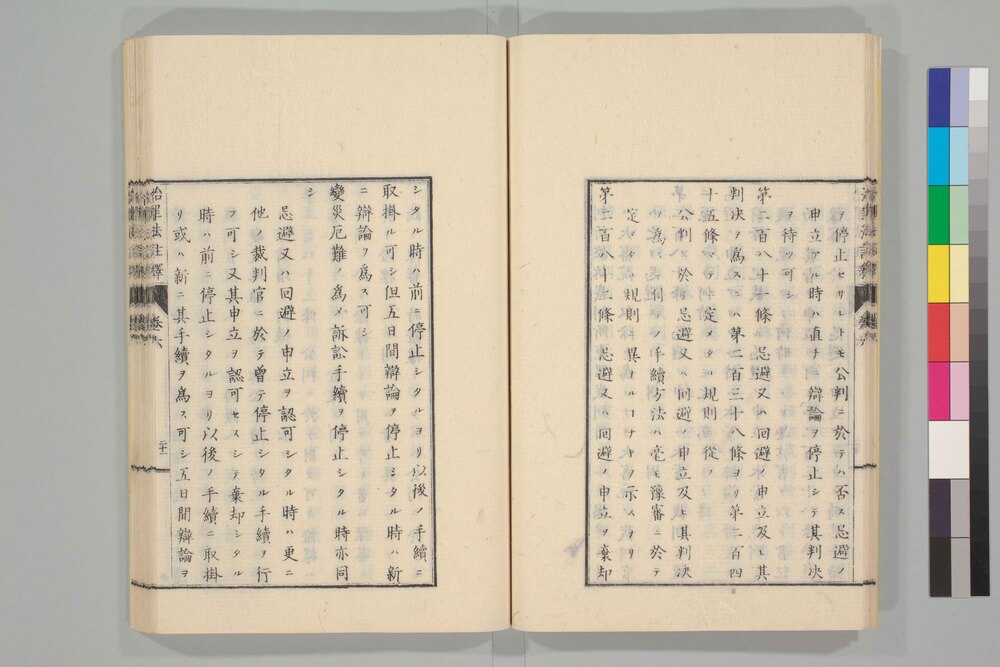 ヲ停止セサルトモ公判ニ於テハ否ス忌避ノ
申立アル時ハ直チニ辯論ヲ停止シテ其判决
ヲ待ツ可シ
第二百八十一條 忌避又ハ回避ノ申立及ヒ其
判决ヲ爲スニハ第二百三十八條ヨリ第二百四
十五條ニ定メタル規則ニ從フ
公判ニ於テ忌避又ハ回避ノ申立及ヒ其判决
ヲ爲スニ付テノ手續方法ハ毫モ豫審ニ於テ
定メタル規則ト異ナルコナキヲ示スメタリ
第二百八十二條 忌避又ハ回避ノ申立ヲ棄却
シタル時ハ前ニ停止シタルヨリ以後ノ手續ニ
取掛ル可シ但五日間辯論ヲ停止シタル時ハ新
ニ辯論ヲ爲ス可シ
變災厄難ノ爲メ訴訟手續ヲ停止シタル時亦同
シ
忌避又ハ回避ノ申立ヲ認可シタル時ハ更ニ
他ノ裁判官ニ於テ曽テ停止シタル手續ヲ行
フ可シ又其申立ヲ認可セスシテ棄却シタル
時ハ前ニ停止シタルヨリ以後ノ手續ニ取掛
リ或ハ新ニ其手續ヲ爲ス可シ五日間辯論ヲ
治罪法註釋 卷六
二十一